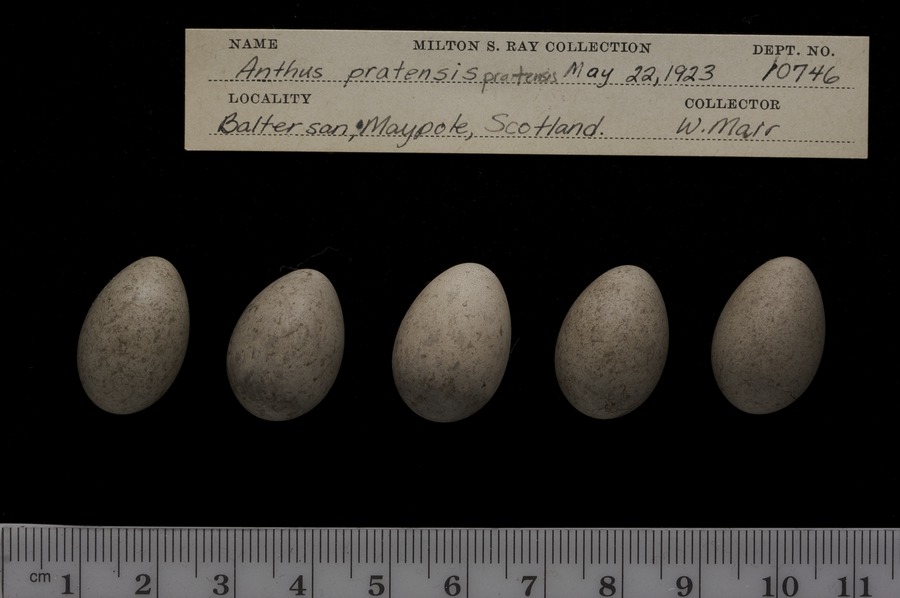 NAME MILTON S. RAY COLLECTION DEPT. NO.
Anthus pratensis pratensis May 22, 1923 10746
LOCALITY COLLECTOR
Baltersan, Maypole, Scotland. W. Mair
cm 1 2 3 4 5 6 7 8 9 10 11